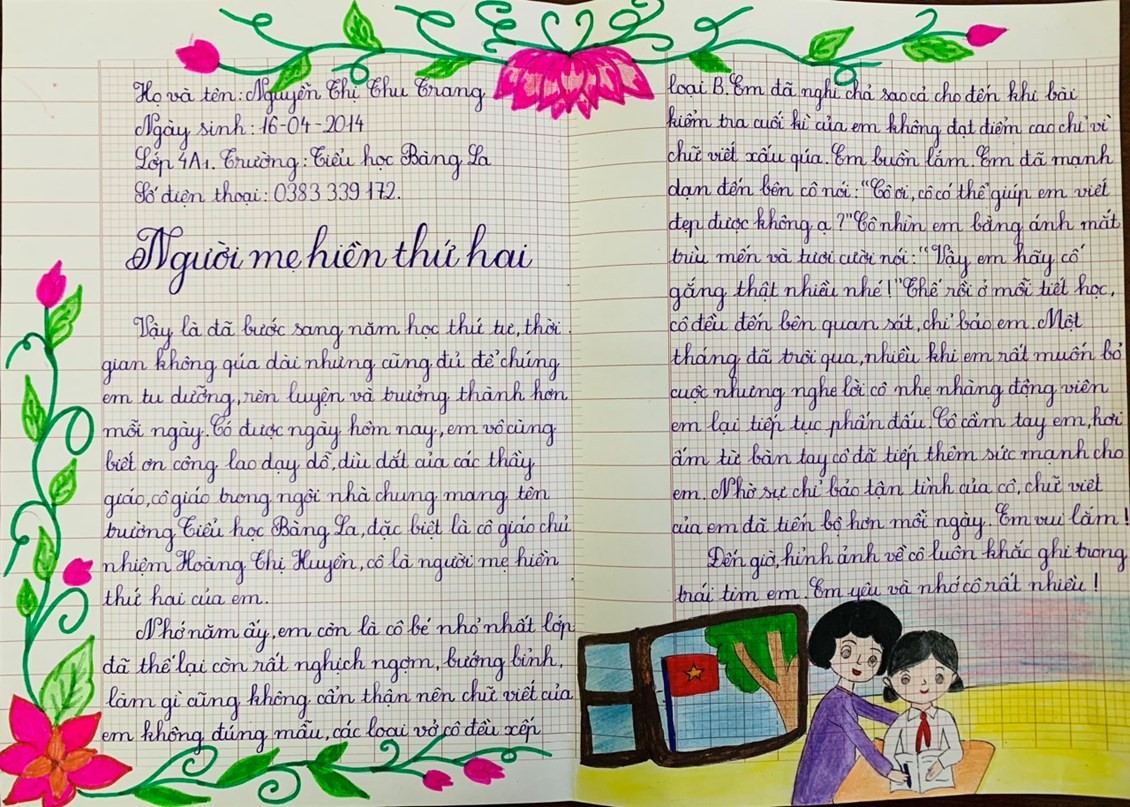 Họ và tên: Nguyễn Thị Thu Trang
Ngày sinh: 16-04-2014
Lớp 4A1. Trường: Tiểu học Bàng La
Số điện thoại: 0383 339 172.
Người mẹ hiền thứ hai
Vậy là đã bước sang năm học thứ tư, thời
gian không qúa dài nhưng cũng đủ để chúng
em tu dưỡng, rèn luyện và trưởng thành hơn
mỗi ngày. Có được ngày hôm nay, em vô cùng
biết ơn công lao dạy dỗ, dìu dắt của các thầy
giáo, cô giáo trong ngôi nhà chung mang tên
trường Tiểu học Bàng La, đặc biệt là cô giáo chủ
nhiệm Hoàng Thị Huyền, cô là người mẹ hiền
thứ hai của em.
Nhớ năm ấy, em còn là cô bé nhỏ nhất lớp
đã thế lại còn rất nghịch ngợm, bướng bỉnh,
làm gì cũng không cẩn thận nên chữ viết của
em không đúng mẫu, các loại vở cô đều xếp
loại B. Em đã nghĩ chả sao cả cho đến khi bài
kiểm tra cuối kì của em không đạt điểm cao chỉ vì
chữ viết xấu qúa. Em buồn lắm. Em đã mạnh
dạn đến bên cô nói: "Cô ơi, cô có thể giúp em viết
đẹp được không ạ?" Cô nhìn em bằng ánh mắt
trìu mến và tươi cười nói: "Vậy em hãy cố
gắng thật nhiều nhé!" Thế rồi ở mỗi tiết học,
cô đều đến bên quan sát, chỉ bảo em. Một
tháng đã trôi qua, nhiều khi em rất muốn bỏ
cuộc nhưng nghe lời cô nhẹ nhàng động viên
em lại tiếp tục phấn đấu. Cô cầm tay em, hơi
ấm từ bàn tay cô đã tiếp thêm sức mạnh cho
em. Nhờ sự chỉ bảo tận tình của cô, chữ viết
của em đã tiến bộ hơn mỗi ngày. Em vui lắm!
Đến giờ, hình ảnh về cô luôn khắc ghi trong
trái tim em. Em yêu và nhớ cô rất nhiều!